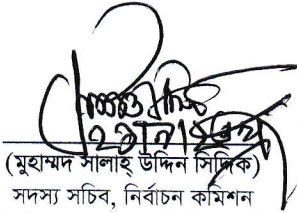 (মুহাম্মদ সালাহ্ উদ্দিন সিদ্দিক)
সদস্য সচিব, নির্বাচন কমিশন